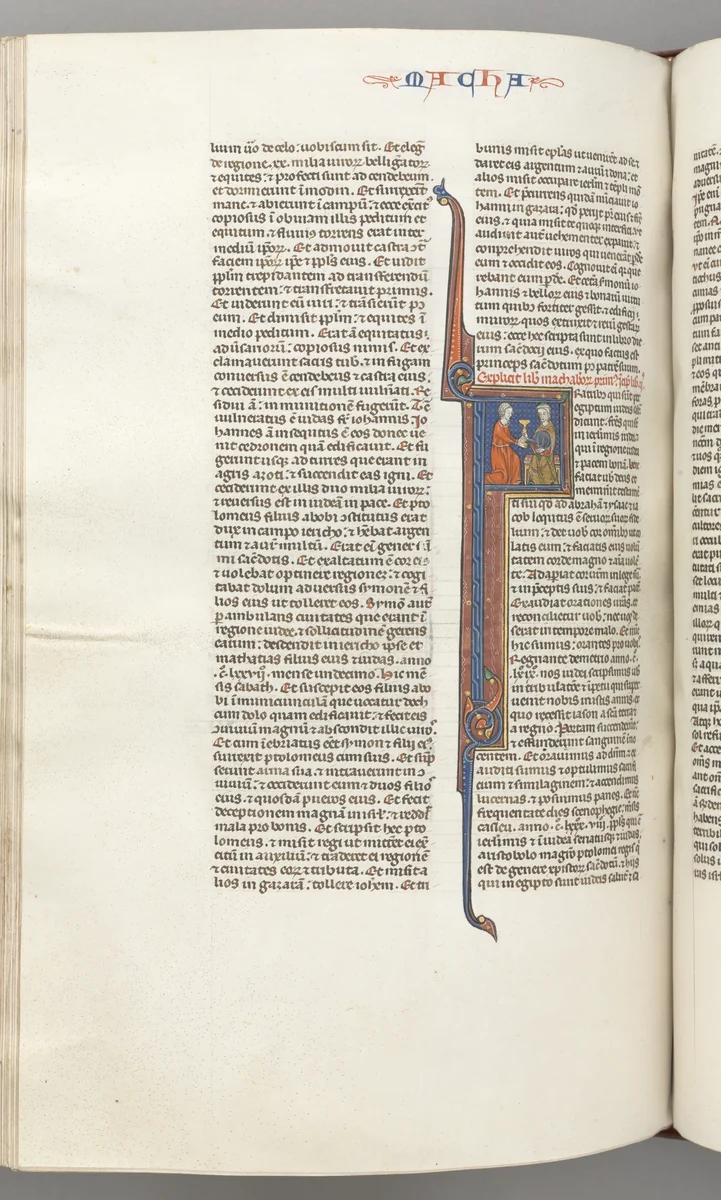 MACHA
lium vi͂o de celo: vobiscum sit. Et eleg̃
de regione .xx. milia virorꝝ belligatorꝝ
⁊ equites: ⁊ profecti sunt ad cendebeum.
et dormierunt ĩ modin. Et surrexert̃
mane. ⁊ abierunt ĩ campũ: ⁊ ecce exercit᷒
copiosus ĩ obviam illis peditum et
equitum. ⁊ fluvi᷒ torrens erat inter
mediũ ip̃oꝝ. Et admovit castra 9t̃
faciem ip̃oꝝ ip̃e ⁊ ppl̃s eius. Et vidit
ppl̃m trepidantem ad transferendũ
torrentem: ⁊ transfretavit primus.
Et viderunt eũ viri: ⁊ trãsierũt p9
eum. Et divisit ppl̃m: ⁊ equites ĩ
medio peditum. Erat ã equitatus
adũsarioꝝ: copiosus nimis. Et ex
clamaverunt sacris tub: ⁊ in fugam
conversus ẽ cendebeus ⁊ castra eius:
⁊ ceciderunt ex eis multi vulnãti. Re
sidui ã: in munitionẽ fugerũt. Tc̃
vulneratus ẽ iudas fr̃ iohannis. Io
hannes ã insequutus ẽ eos donec ve
nit cedronem quã edificavit. Et fu
gerunt usqꝫ ad turres que erant in
agris azoti: ⁊ succendit eas igni. Et
ceciderunt ex illis duo milia virorꝝ:
⁊ reversus est in iudeã in pace. Et pto
lomeus filius abobi 9stitutus erat
dux in campo iericho: ⁊ hẽbat argen
tum ⁊ aur̃ multũ. Erat eñ gener sũ
mi sacdotis. Et exaltatum ẽ cor eius
⁊ volebat optinere regionem: ⁊ cogi
tabat dolum adversus symonẽ ⁊ fi
lios eius ut tolleret eos. Symõ aut̃
p̱ambulans civitates que erant ĩ
regione iudee. ⁊ sollicitudinẽ gerens
earum: descendit in iericho ipse et
mathatias filius eius ⁊ iudas. anno
.c̃. lxxvij. mense undecimo. hic mẽ
sis sabath. Et suscepit eos filius abo
bi ĩ municiunculã que vocatur doch
cum dolo quam edificavit: ⁊ fecit eis
9vivium magnũ ⁊ abscondit illic viros.
Et cum ĩebriatus eẽt symon ⁊ filii ei᷒:
surrexit ptolomeus cum suis. Et sũp
serunt arma sua. ⁊ intraverunt in 9
viviũ: ⁊ occiderunt eum ⁊ duos filios
eius. ⁊ quosdã pueros eius. Et fecit
deceptionem magnã in isrl̃: ⁊ reddid̃
mala pro bonis. Et scripsit hec pto
lomeus. ⁊ misit regi ut mitteret ei exer
citũ in auxiliũ: ⁊ traderet ei regionẽ
⁊ civitates eoꝝ ⁊ tributa. Et misit a
lios in gazarã: tollere iohem. Et tri
bunis misit epl̃as ut venirent ad se: ⁊
daret eis argentum ⁊ aurũ ⁊ dona: et
alios misit occupare ierl̃m ⁊ templi mõ
tem. Et p̃currens quidã nũciavit io
hanni in gazara: qd̃ periit pr̃ eius ⁊ fr̃s
eius. ⁊ quia misit te quoqꝫ interfici. Ut
audivit aut̃ vehementer expavit: ⁊
comprehendit viros qui venerant p̱de
eum ⁊ occidit eos. Cognovit eñ qr̃ que
rebant eum p̱de. Et cet̃a smonũ io
hannis ⁊ belloꝝ eius ⁊ bonarũ virtu
tum quibꝫ fortiter gessit. ⁊ edificii
murorꝝ quos extruxit ⁊ rerũ gestarꝝ
eius: ecce hec scripta sunt in libro die
rum sacdocii eius. ex quo factus est
princeps sacdotum p᷒ patrem suum.
Explicit lib̃ machaboꝝ prim᷒. Jncip̃ lib̃ ij.
Fratribꝫ qui sunt per
egiptum iudeis salũ
dicunt: fr̃es qui sũt
in ierl̃imis iudei.
⁊ qui ĩ regione iudee
⁊ pacem bonã. bñ
faciat vob deus et
meminerit testamẽ
ti sui qd̃ ad abrahã ⁊ ysaac ⁊ ia
cob locutus ẽ servorꝝ suorꝝ fide
lium: ⁊ det vob cor omĩbꝫ ut co
latis eum: ⁊ faciatis eius volũ
tatem corde magno ⁊ aĩo volen
te. Adap̱iat cor urm̃ in lege sua
⁊ in p̃ceptis suis: ⁊ faciat pacẽ
Exaudiat orationes ur̃as. ⁊
reconcilietur vob: nec vos de
serat in tempore malo. Et nũc
hic sumus: orantes pro vobis.
Regnante demetrio anno .c̃.
lx̃ix. nos iudei scripsimus vob
in tribulatiõe ⁊ ĩpetu qui super
venit nobis in istis annis. ex
quo recessit iason a sca terra ⁊
a regno. Portam succenderũt.
⁊ effuderunt sanguinẽ ĩno
centem. Et oravimus ad dñm. ⁊ ex
auditi sumus ⁊ optulimus sacrifi
cium ⁊ similaginem: ⁊ accendimus
lucernas. ⁊ p̱posuimus panes. Et nc̃
frequentate dies scenophegie: m̃sis
casleu. anno .c̃. lxxx. viij. ppl̃s qui ẽ
ierl̃imis ⁊ ĩ iudea senatusqꝫ ⁊ iudas.
aristobolo magr̃o ptolomei regis q̃
est de genere xpistorꝝ sacdotũ: ⁊ hiis
qui in egipto sunt iudeis salutẽ ⁊ sa